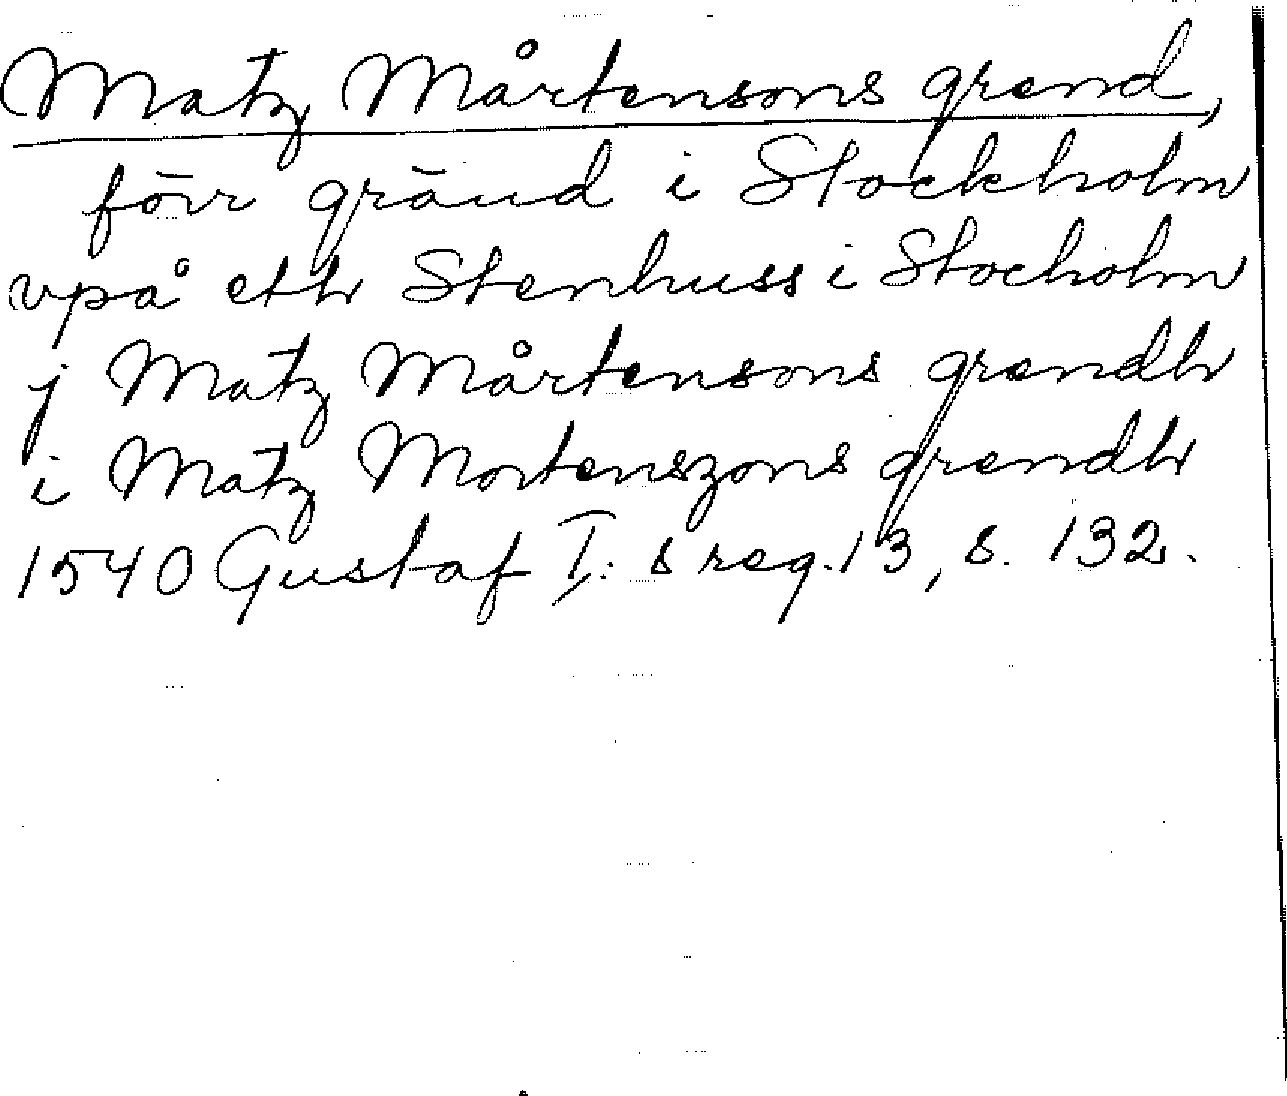 Matz Mårtensons grend,
förr gränd i Stockholm
vpå eth Stenhuss i Stocholm
j Matz Mårtensons grendh
i Matz Mortenszons grendh
1540 Gustaf I:s reg. 13, s. 132.